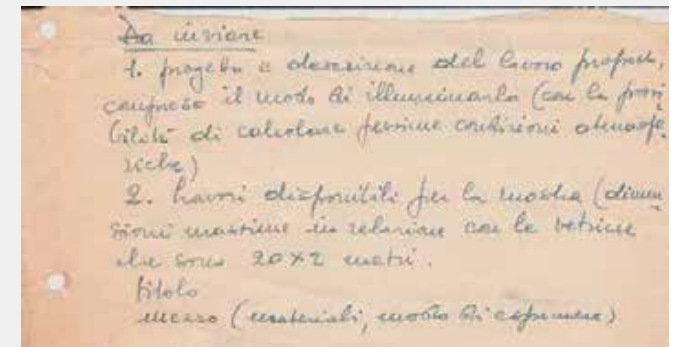 Da inviare
1. progetto e descrizione del lavoro proposto,
compreso il modo di illuminarlo (con la possi
bilità di calcolare pessime condizioni atmosfe
riche)
2. Lavori disponibili per la mostra (dimen
sioni massime in relazione con le vetrine
che sono 20x2 metri.
titolo
mezzo (materiali, modo di esprimere)